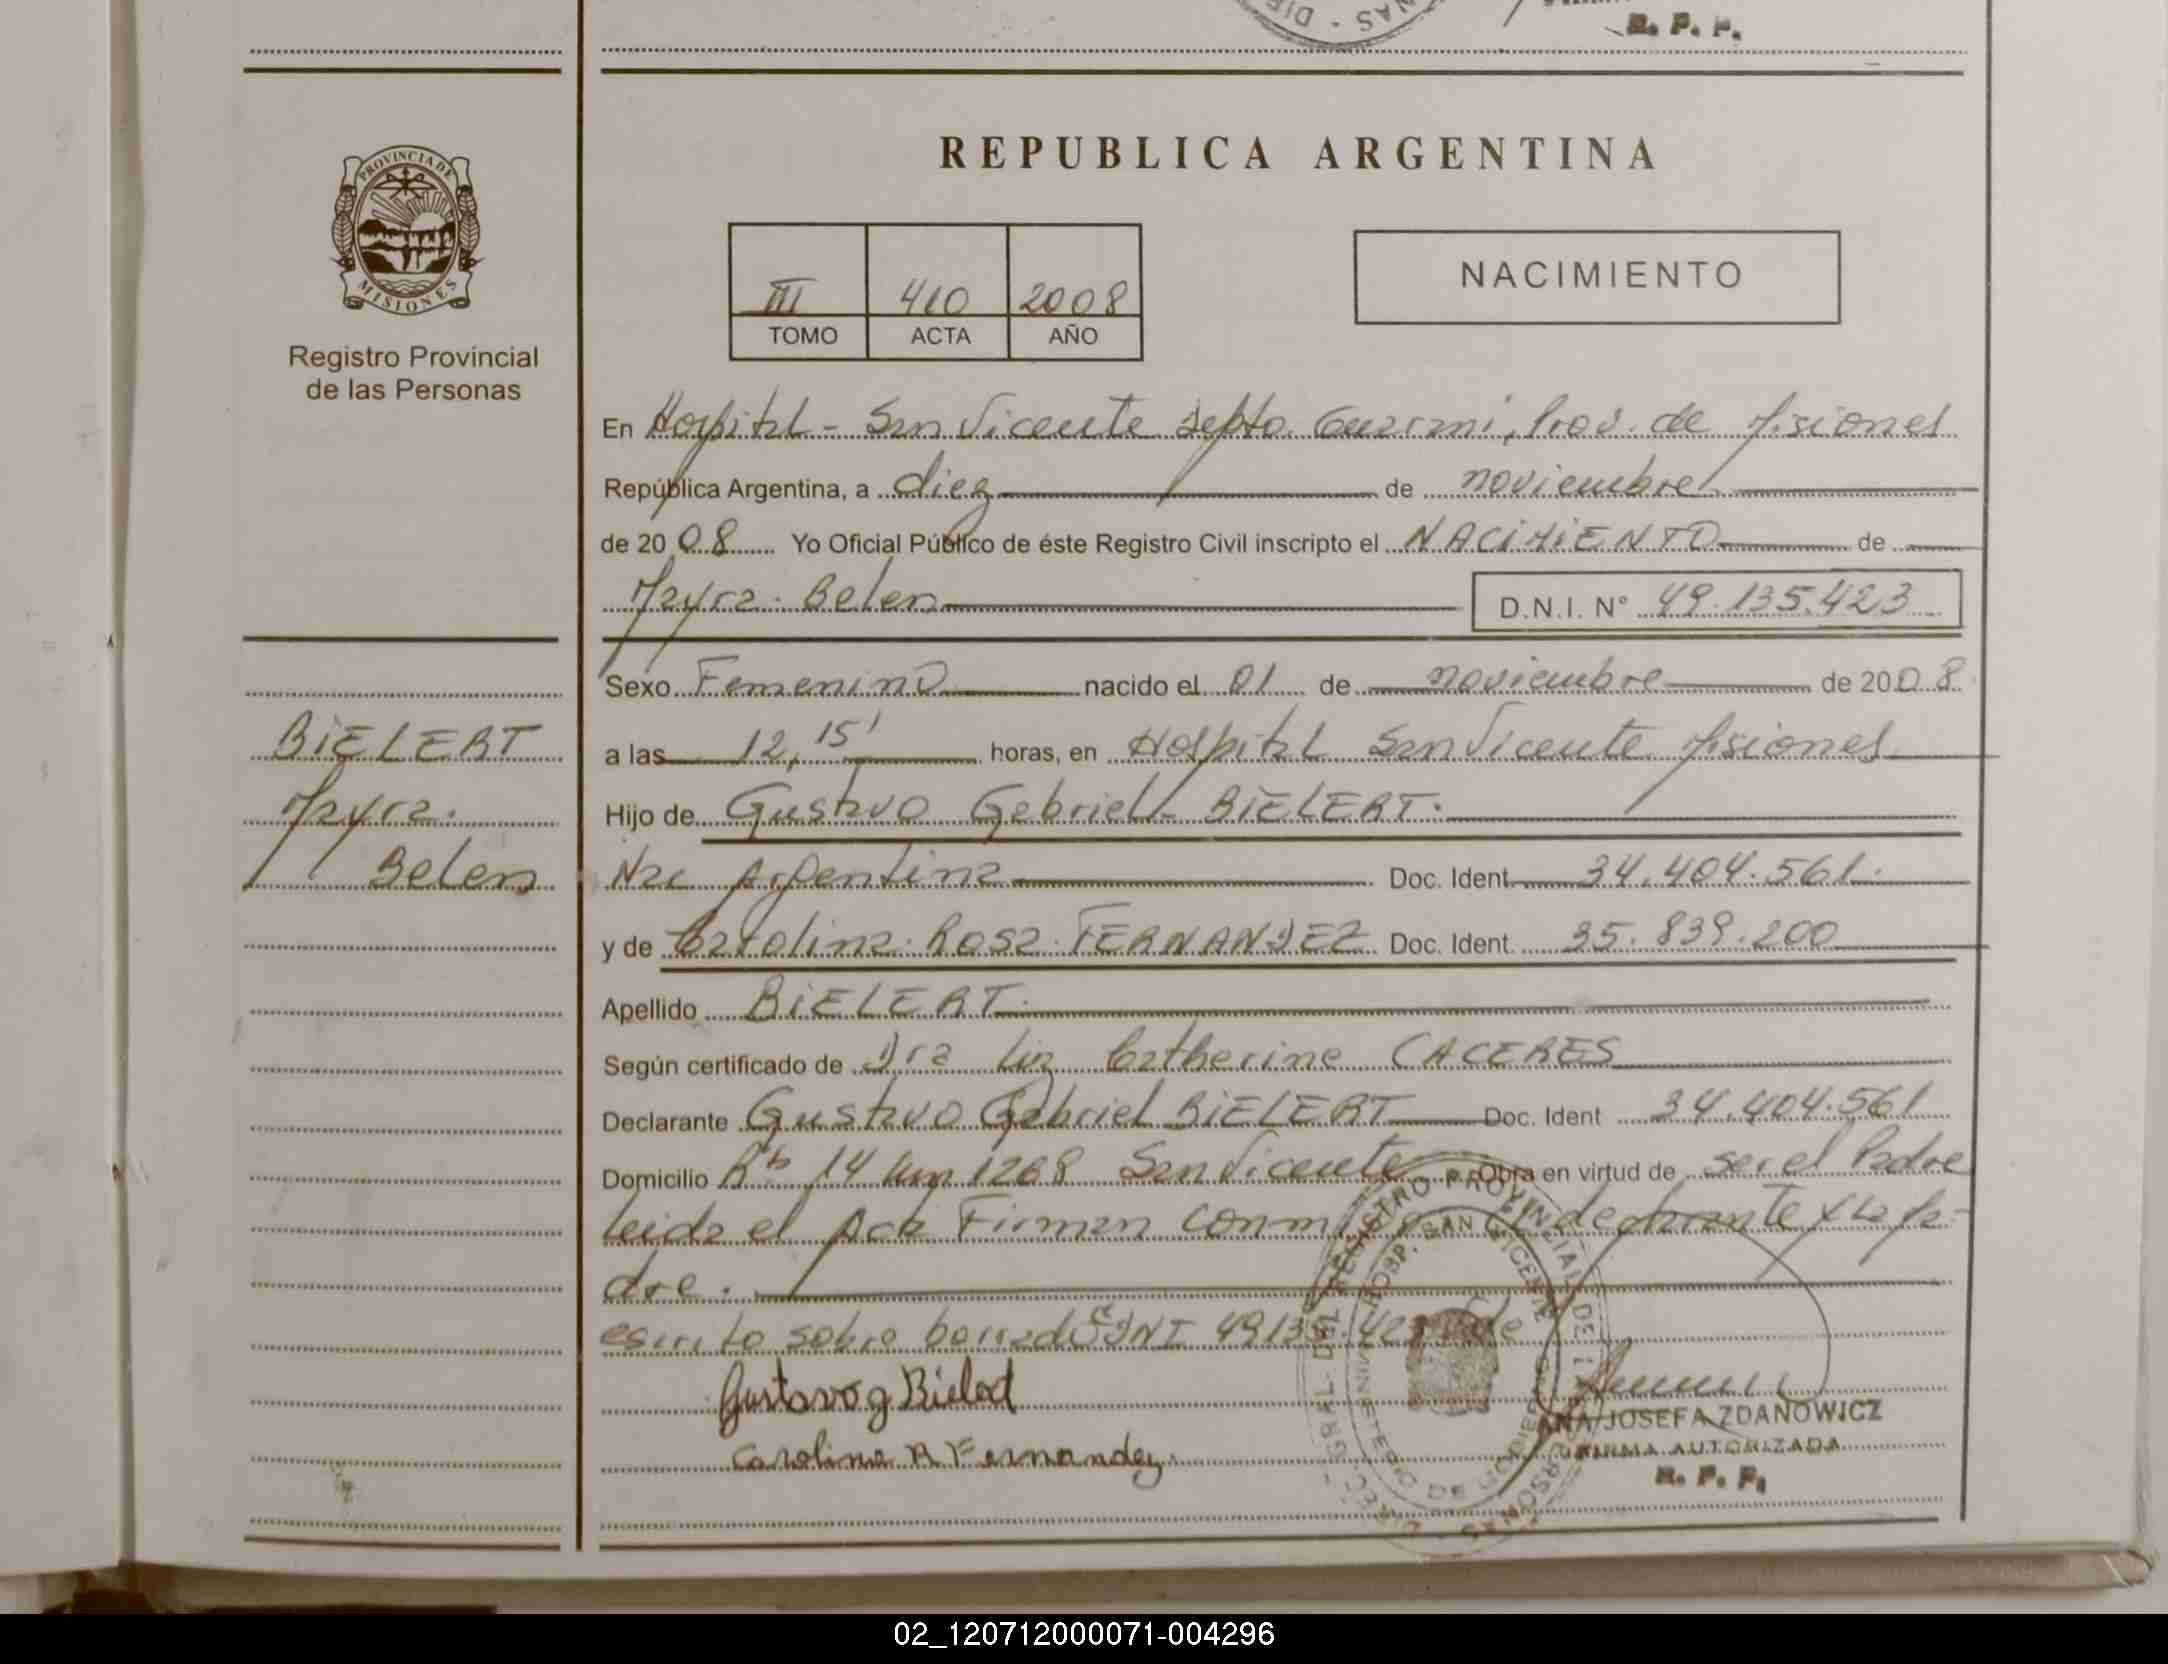 NAS - DIR
R. P. P.
PROVINCIA DE
MISIONES
Registro Provincial
de las Personas
REPUBLICA ARGENTINA
III 410 2008
TOMO ACTA AÑO
NACIMIENTO
En Hospital - San Vicente Depto. Guarani, Prov. de Misiones
República Argentina, a diez de noviembre
de 2008 Yo Oficial Público de éste Registro Civil inscripto el NACIMIENTO de
Mayra Belen D.N.I. N° 49.135.423
Sexo Femenino nacido el 01 de noviembre de 2008
BIELERT
a las 12,15' horas, en Hospital San Vicente Misiones
Mayra
Hijo de Gustavo Gabriel BIELERT
Belen
Nac Argentina Doc. Ident 34.404.561.
y de Carolina Rosa FERNANDEZ Doc. Ident. 35.839.200
Apellido BIELERT
Según certificado de Dra Liz Catherine CACERES
Declarante Gustavo Gabriel BIELERT Doc. Ident 34.404.561
Domicilio Rta 14 km 1268 San Vicente Obra en virtud de ser el Padre
leida el Acta Firman conmigo el declarante y la Ma-
dre.
escrito sobre borrado DNI 49135.423 Vale
Gustavo g Bielert
Carolina R Fernandez
ANA JOSEFA ZDANOWICZ
FIRMA AUTORIZADA
R. P. P.
REGISTRO PROVINCIAL DE LAS PERSONAS - DIREC. GRAL. DEL
HOSP. SAN VICENTE
MINISTERIO DE GOBIERNO
02_120712000071-004296